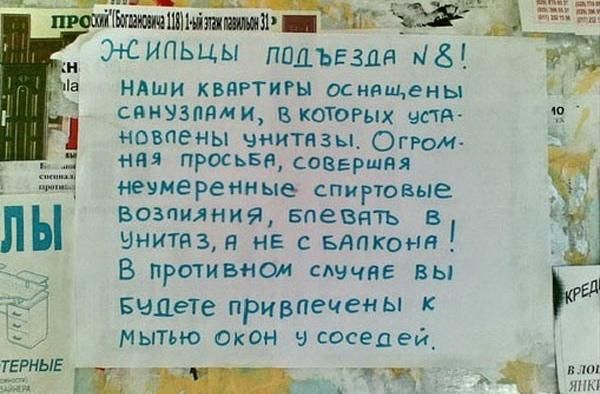 ПРОСКИЙ" (Богдановича 118) 1-ый этаж павильон 31
ЖИЛЬЦЫ ПОДЪЕЗДА N8!
НАШИ КВАРТИРЫ ОСНАЩЕНЫ
САНУЗЛАМИ, В КОТОРЫХ УСТА-
НОВЛЕНЫ УНИТАЗЫ. ОГРОМ-
НАЯ ПРОСЬБА, СОВЕРШАЯ
НЕУМЕРЕННЫЕ СПИРТОВЫЕ
ВОЗЛИЯНИЯ, БЛЕВАТЬ В
УНИТАЗ, А НЕ С БАЛКОНА!
В ПРОТИВНОМ СЛУЧАЕ ВЫ
БУДЕТЕ ПРИВЛЕЧЕНЫ К
МЫТЬЮ ОКОН У СОСЕДЕЙ.
ЛЫ
ТЕРНЫЕ
КРЕД
В ЛО
ЯНК